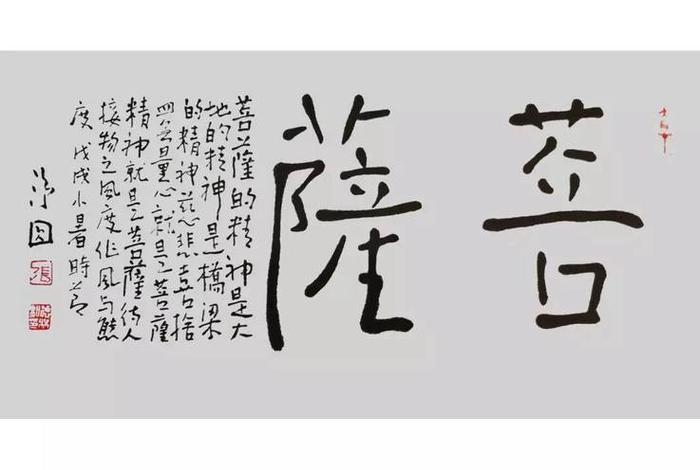 菩薩
菩薩的精神是大
地的精神是橋梁
的精神慈悲喜捨
四無量心就是菩薩
精神就是菩薩待人
接物之風度作風与態
度戊戌小暑時節
淨因
張